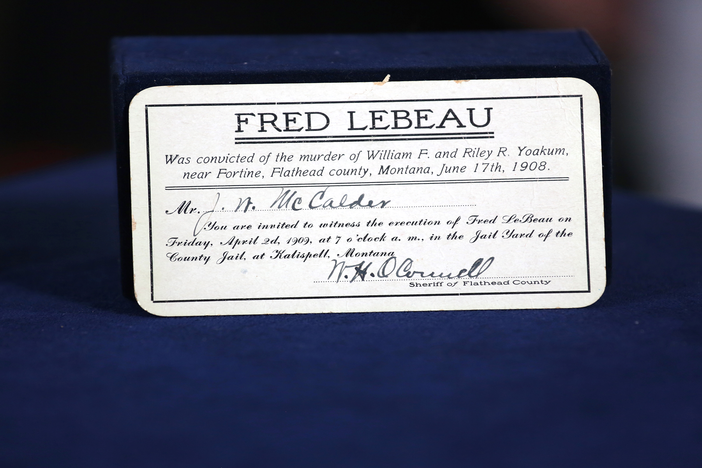 FRED LEBEAU
Was convicted of the murder of William F. and Riley R. Yoakum,
near Fortine, Flathead county, Montana, June 17th, 1908.
Mr. J. W. McCalder
You are invited to witness the execution of Fred LeBeau on
Friday, April 2d, 1909, at 7 o'clock a. m., in the Jail Yard of the
County Jail, at Kalispell, Montana
W. H. O'Connell
Sheriff of Flathead County